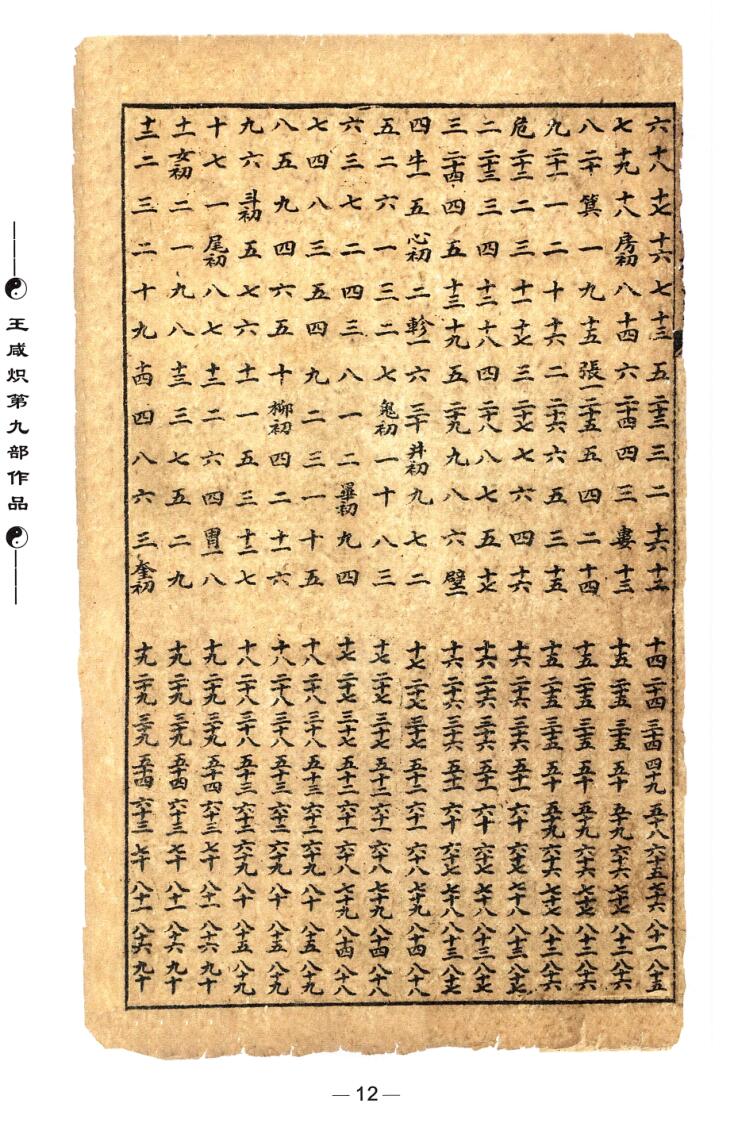 六 十八 十七 十六 七 十三 五 二十三 三 二 十六 十二 十四 二十四 三十四 四十九 五十八 六十五 七十六 八十一 八十五
七 十九 十八 房初 八 十四 六 二十四 四 三 婁 十三 十五 二十五 三十五 五十 五十九 六十六 七十七 八十二 八十六
八 二十 箕 一 九 十五 張一 二十五 五 四 二 十四 十五 二十五 三十五 五十 五十九 六十六 七十七 八十二 八十六
九 二十一 一 二 十 十六 二 二十六 六 五 三 十五 十五 二十五 三十五 五十 五十九 六十六 七十七 八十二 八十六
危 二十二 二 三 十一 十七 三 二十七 七 六 四 十六 十六 二十六 三十六 五十一 六十 六十七 七十八 八十三 八十七
二 二十三 三 四 十二 十八 四 二十八 八 七 五 十七 十六 二十六 三十六 五十一 六十 六十七 七十八 八十三 八十七
三 二十四 四 五 十三 十九 五 二十九 九 八 六 壁一 十六 二十六 三十六 五十一 六十 六十七 七十八 八十三 八十七
四 牛一 五 心初 二 軫一 六 三十 井初 九 七 二 十七 二十七 三十七 五十二 六十一 六十八 七十九 八十四 八十八
五 二 六 一 三 二 七 鬼初 一 十 八 三 十七 二十七 三十七 五十二 六十一 六十八 七十九 八十四 八十八
六 三 七 二 四 三 八 一 二 畢初 九 四 十七 二十七 三十七 五十二 六十一 六十八 七十九 八十四 八十八
七 四 八 三 五 四 九 二 三 一 十 五 十八 二十八 三十八 五十三 六十二 六十九 八十 八十五 八十九
八 五 九 四 六 五 十 柳初 四 二 十一 六 十八 二十八 三十八 五十三 六十二 六十九 八十 八十五 八十九
九 六 斗初 五 七 六 十一 一 五 三 十二 七 十八 二十八 三十八 五十三 六十二 六十九 八十 八十五 八十九
十 七 一 尾初 八 七 十二 二 六 四 胃一 八 十九 二十九 三十九 五十四 六十三 七十 八十一 八十六 九十
十一 女初 二 一 九 八 十三 三 七 五 二 九 十九 二十九 三十九 五十四 六十三 七十 八十一 八十六 九十
十二 二 三 二 十 九 十四 四 八 六 三 奎初 十九 二十九 三十九 五十四 六十三 七十 八十一 八十六 九十
王咸炽第九部作品
—12—